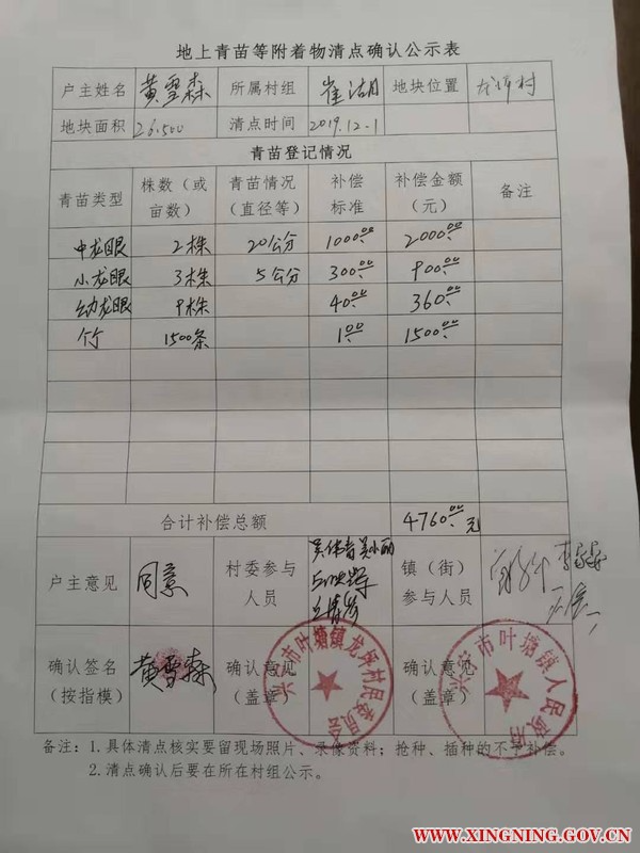 地上青苗等附着物清点确认公示表
户主姓名 黄雪森 所属村组 崔湖 地块位置 龙坪村
地块面积 26.500 清点时间 2019.12.1
青苗登记情况
青苗类型 株数（或亩数） 青苗情况（直径等） 补偿标准 补偿金额（元） 备注
中龙眼 2株 20公分 1000.00 2000.00
小龙眼 3株 5公分 300.00 900.00
幼龙眼 9株 40.00 360.00
竹 1500条 1.00 1500.00
合计补偿总额 4760.00元
户主意见 同意 村委参与人员 镇（街）参与人员
确认签名（按指模） 黄雪森 确认意见（盖章） 确认意见（盖章）
兴宁市叶塘镇龙坪村民委员会
兴宁市叶塘镇人民政府
备注：1.具体清点核实要留现场照片、录像资料；抢种、插种的不予补偿。
2.清点确认后要在所在村组公示。
WWW.XINGNING.GOV.CN